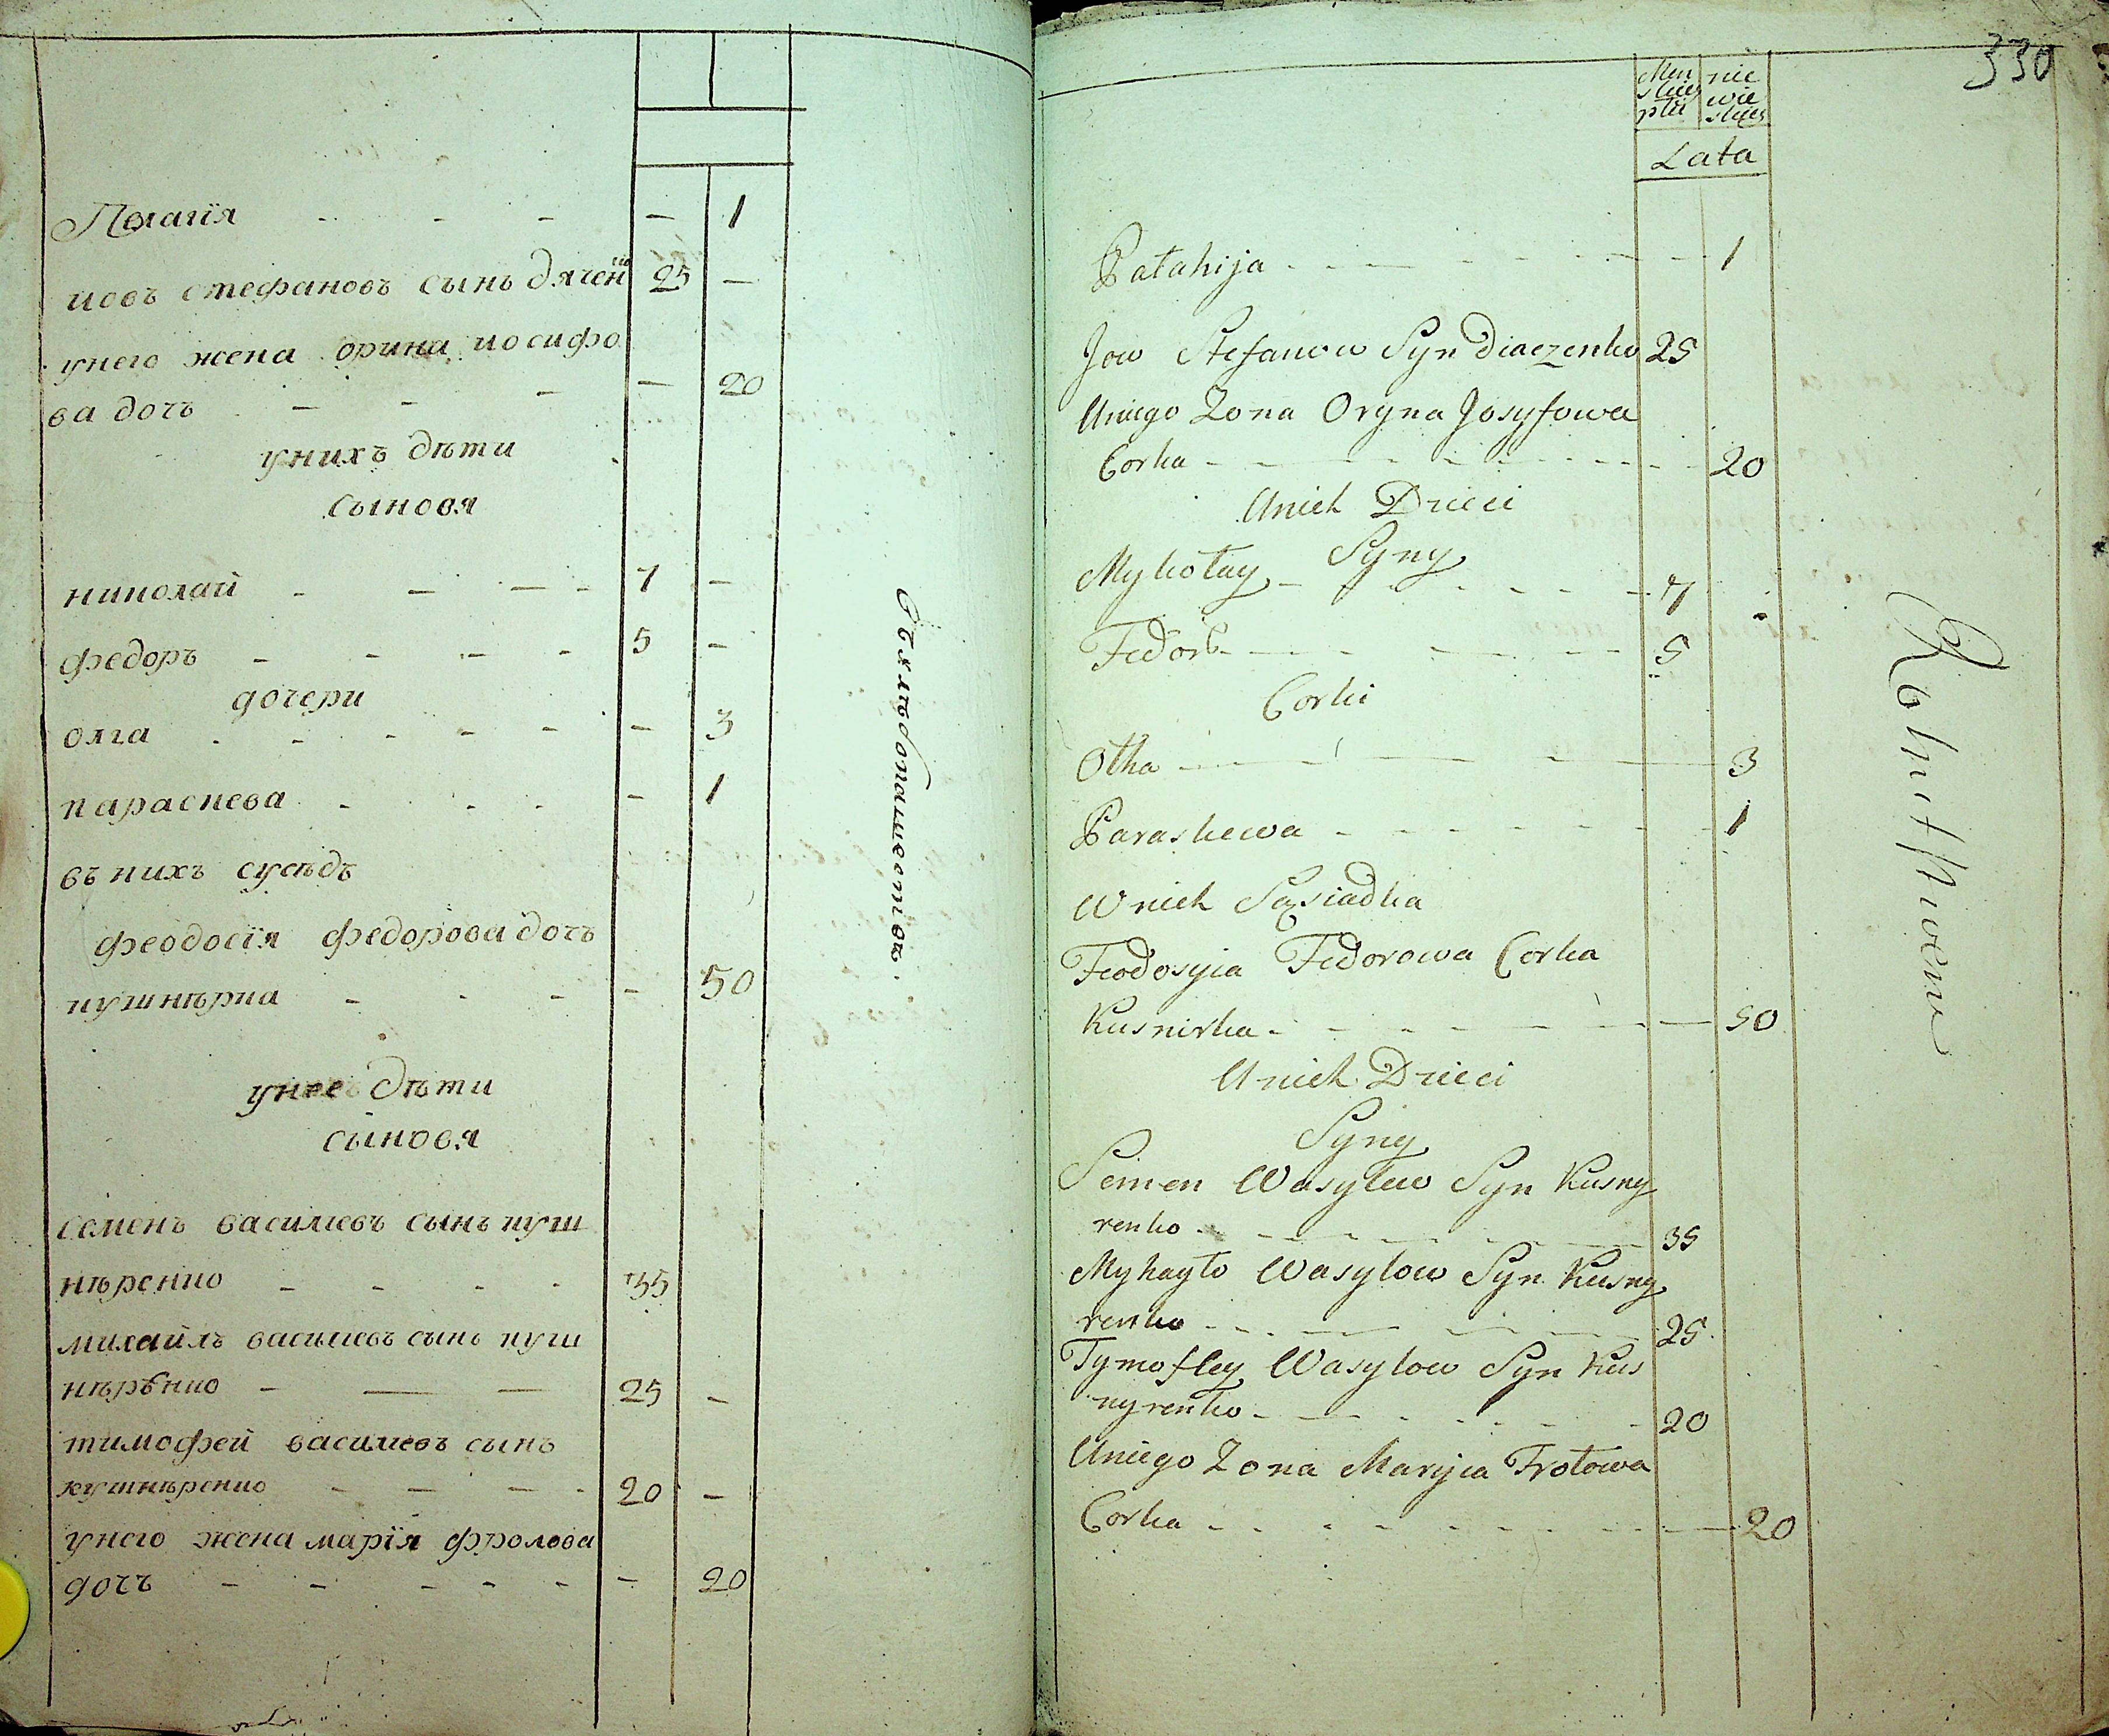 Пелагія - - - - 1
иовъ стефановъ сынъ дяченко 25 -
унего жена орина иосифо
ва дочъ - - - - 20
унихъ дѣти
сыновя
николай - - - - 7 -
федоръ - - - - 5 -
дочери
олга - - - - - 3
параскева - - - - 1
въ нихъ сусѣдъ
феодосія федорова дочъ
кушнѣрка - - - - 50
унее дѣти
сыновя
семенъ василіевъ сынъ куш
нѣренко - - - - 35
михайлъ василіевъ сынъ куш
нѣрѣнко - - - 25 -
тимофей василіевъ сынъ
кушнѣренко - - - - 20 -
унего жена марія фролова
дочъ - - - - - - 20
330
nie
wie
Lata
Pałahija - - - - - - 1
Jow Stefanow Syn Diaczenko 25
Uniego Zona Oryna Josyfowa
Corka - - - - - - 20
Unich Dzieci
Syny
Mykołay - - - - - 7
Fedor - - - - - 5
Corki
Olha - - - - - 3
Paraskewa - - - - - - 1
Wnich Sąsiadka
Feodosyia Fedorowa Corka
Kusnirka - - - - - - 50
Unich Dzieci
Syny
Semen Wasylew Syn Kusny
renko - - - - - - 35
Myhayło Wasylow Syn Kusny
renko - - - - - - 25
Tymofiey Wasylow Syn Kus
nyrenko - - - - - 20
Uniego Zona Maryia Frołowa
Corka - - - - - - - 20